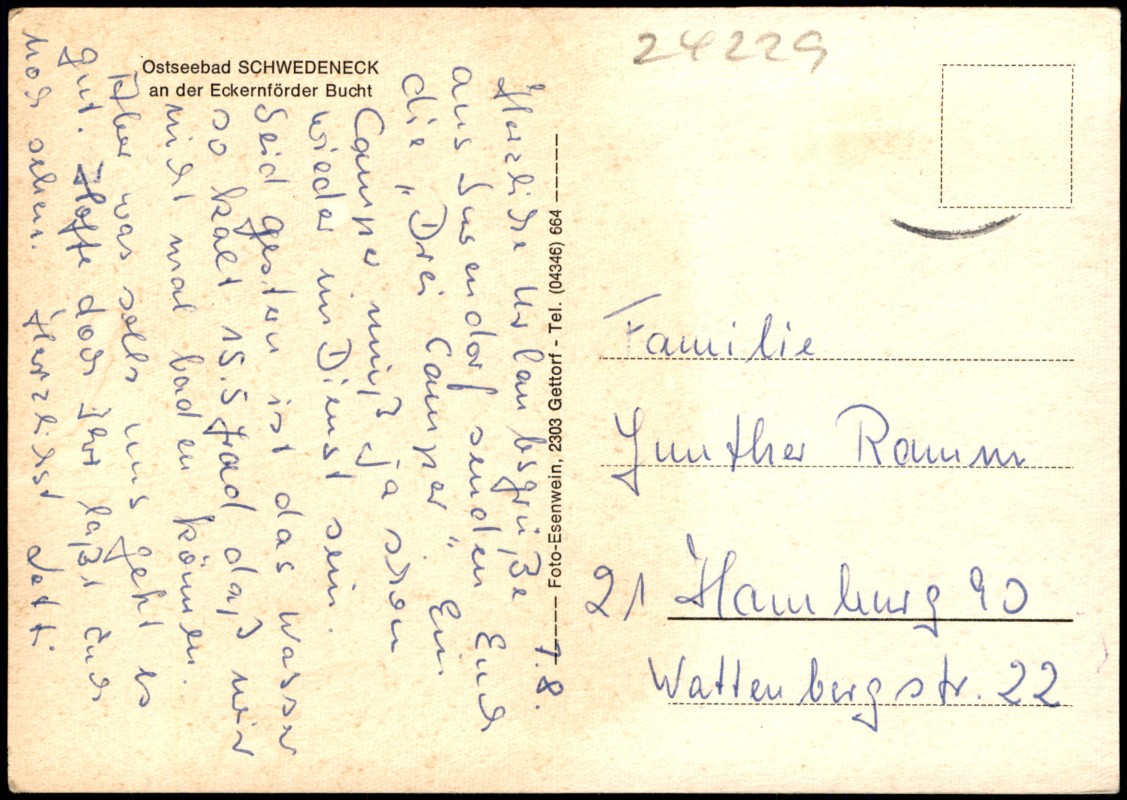 Ostseebad SCHWEDENECK
an der Eckernförder Bucht
7.8.
Herzliche Urlaubsgrüße
aus Surendorf senden Euch
die „Drei Camper“ Ein
Camper muß ja schon
wieder im Dienst sein.
Seid gestern ist das Wasser
so kalt 15.5 grad daß wir
nicht mal baden können.
Aber was solls uns geht es
gut. Hoffe doch Ihr laßt Euch
noch sehen. Herzlichst
Foto-Esenwein, 2303 Gettorf - Tel. (04346) 664
24229
Familie
Gunther Ramm
21 Hamburg 90
Wattenbergstr. 22